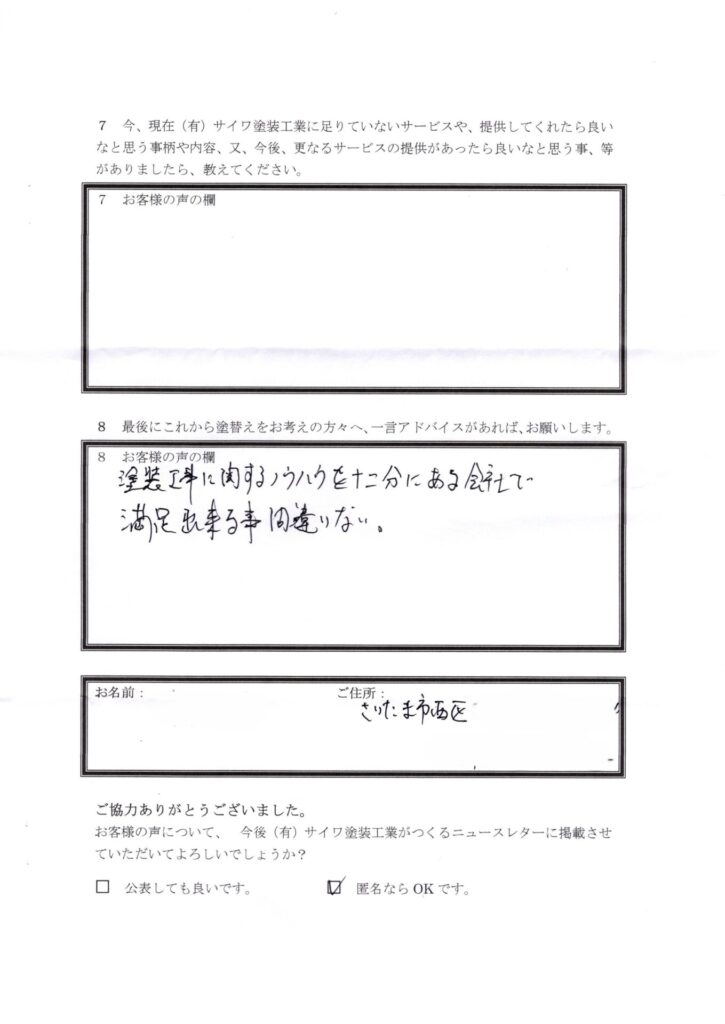 7 今、現在（有）サイワ塗装工業に足りていないサービスや、提供してくれたら良い
なと思う事柄や内容、又、今後、更なるサービスの提供があったら良いなと思う事、等
がありましたら、教えてください。
7 お客様の声の欄
8 最後にこれから塗替えをお考えの方々へ、一言アドバイスがあれば、お願いします。
8 お客様の声の欄
塗装工事に関するノウハウを十二分にある会社で
満足出来る事間違いない。
お名前： ご住所：
さいたま市西区
ご協力ありがとうございました。
お客様の声について、 今後（有）サイワ塗装工業がつくるニュースレターに掲載させ
ていただいてよろしいでしょうか？
☐ 公表しても良いです。 ☑ 匿名なら OK です。